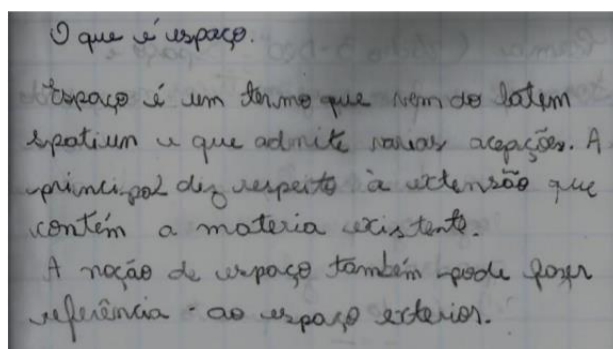 O que é espaço.
Espaço é um termo que vem do latem
spatiun e que admite varias acepções. A
principal diz respeito à extensão que
contém a materia existente.
A noção de espaço também pode fazer
referência - ao espaço exterior.